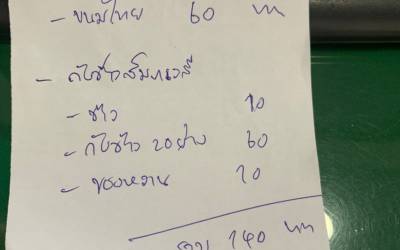 - ขนมไทย 60 บาท
- กับข้าว
- ข้าว 10
- กับข้าว 2 อย่าง 60
- ของหวาน 10
รวม 140 บาท